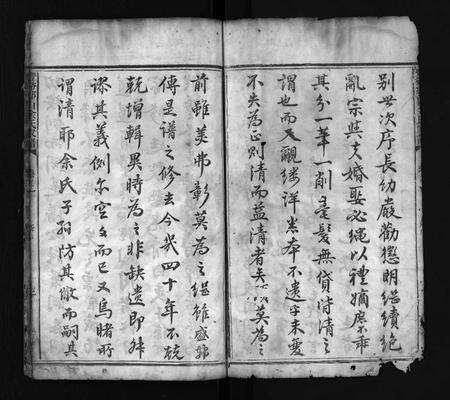 別世次序長幼嚴勸懲明繼續絕
亂宗與夫婚娶必繩以禮嫡庶不乖
其分一筆一削毫髮無貸皆清之
謂也而又覼縷詳悉本不遺乎末變
不失為正則清而益清者矣以莫為之
前雖美弗彰莫為之繼雖盛弗
傳是譜之修去今幾四十年不兢
兢增輯異時為之非缺遺即舛
謬其義例尔空文而已又烏睹所
謂清耶余氏子孫防其敝而嗣其